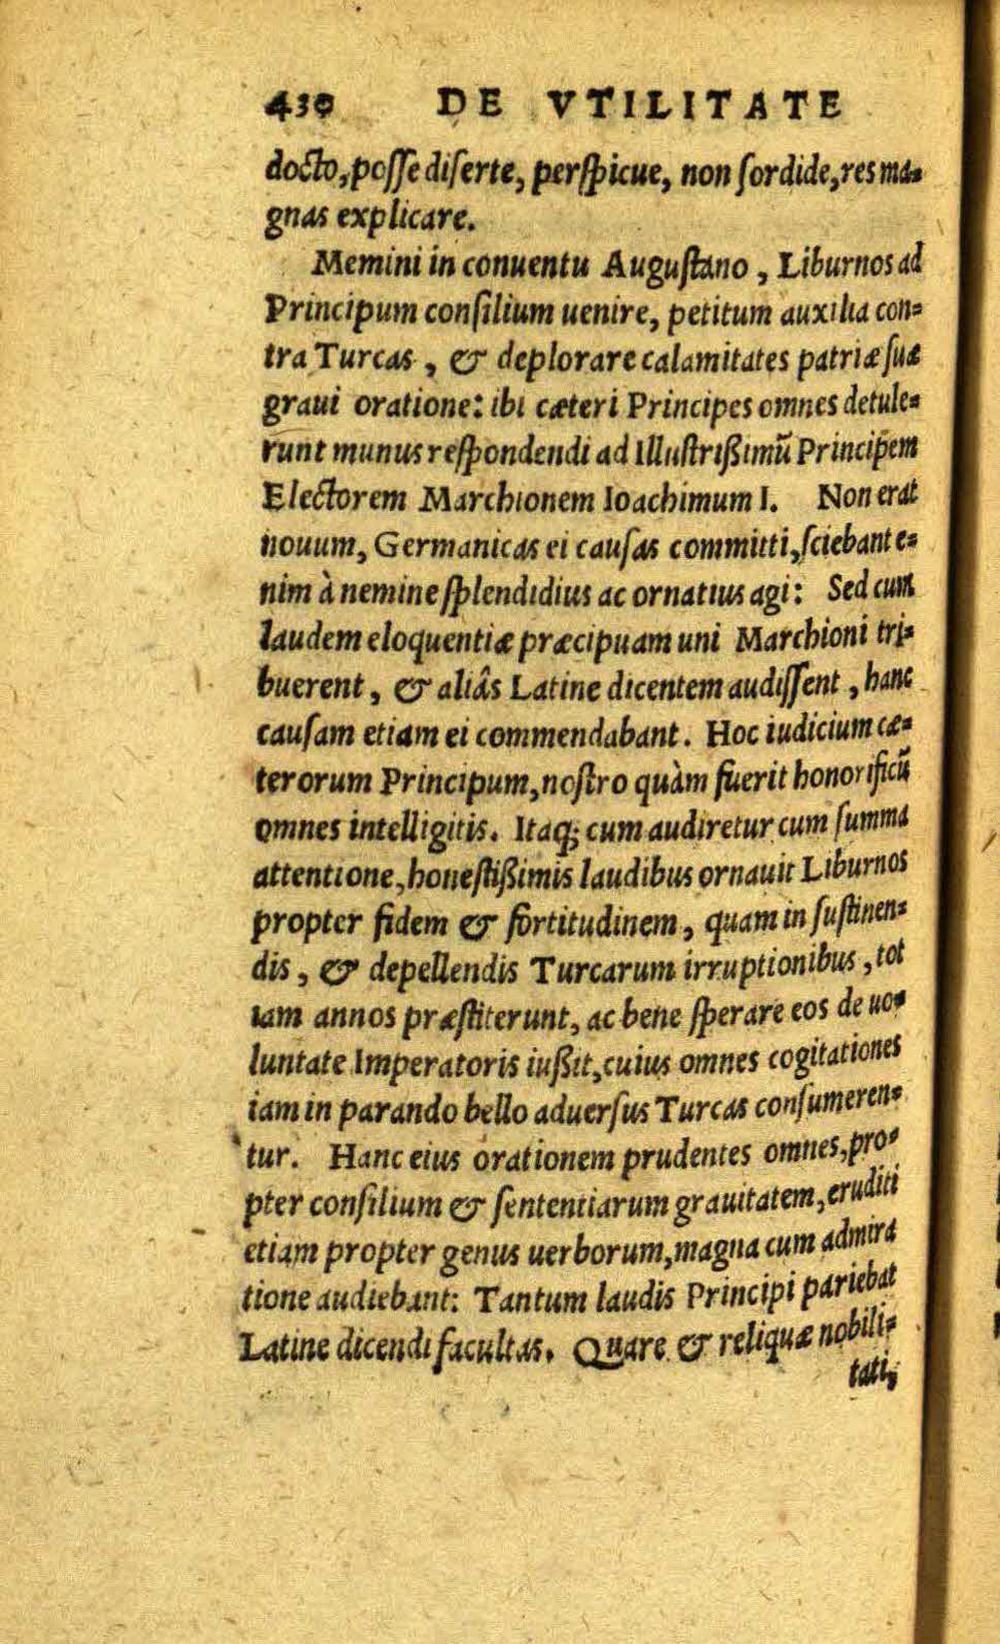 430 DE VTILITATE
docto, posse diserte, perspicue, non sordide, res ma=
gnas explicare.
Memini in conuentu Augustano, Liburnos ad
Principum consilium uenire, petitum auxilia con=
tra Turcas, & deplorare calamitates patriæ suæ
graui oratione: ibi cæteri Principes omnes detule=
runt munus respondendi ad Illustrißimū Principem
Electorem Marchionem Ioachimum I. Non erat
nouum, Germanicas ei causas committi, sciebant e=
nim à nemine splendidius ac ornatius agi: Sed cum
laudem eloquentiæ præcipuam uni Marchioni tri=
buerent, & aliâs Latine dicentem audissent, hanc
causam etiam ei commendabant. Hoc iudicium cæ=
terorum Principum, nostro quàm fuerit honorificū
omnes intelligitis. Itaq; cum audiretur cum summa
attentione, honestißimis laudibus ornauit Liburnos
propter fidem & fortitudinem, quam in sustinen=
dis, & depellendis Turcarum irruptionibus, tot
iam annos præstiterunt, ac bene sperare eos de uo=
luntate Imperatoris iußit, cuius omnes cogitationes
iam in parando bello aduersus Turcas consumeren=
tur. Hanc eius orationem prudentes omnes, pro=
pter consilium & sententiarum grauitatem, eruditi
etiam propter genus uerborum, magna cum admira
tione audiebant: Tantum laudis Principi pariebat
Latine dicendi facultas. Quare & reliquæ nobili=
tati,